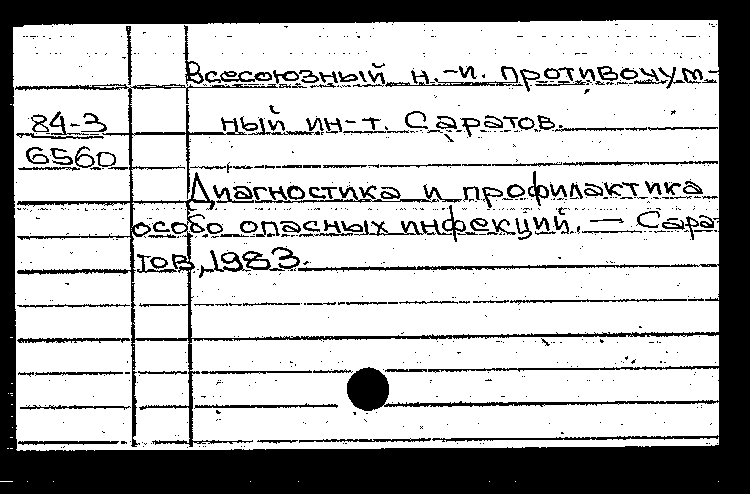 Всесоюзный н.-и. противочум-
84-3 ный ин-т. Саратов.
6560
Диагностика и профилактика
особо опасных инфекций. — Сара-
тов, 1983.